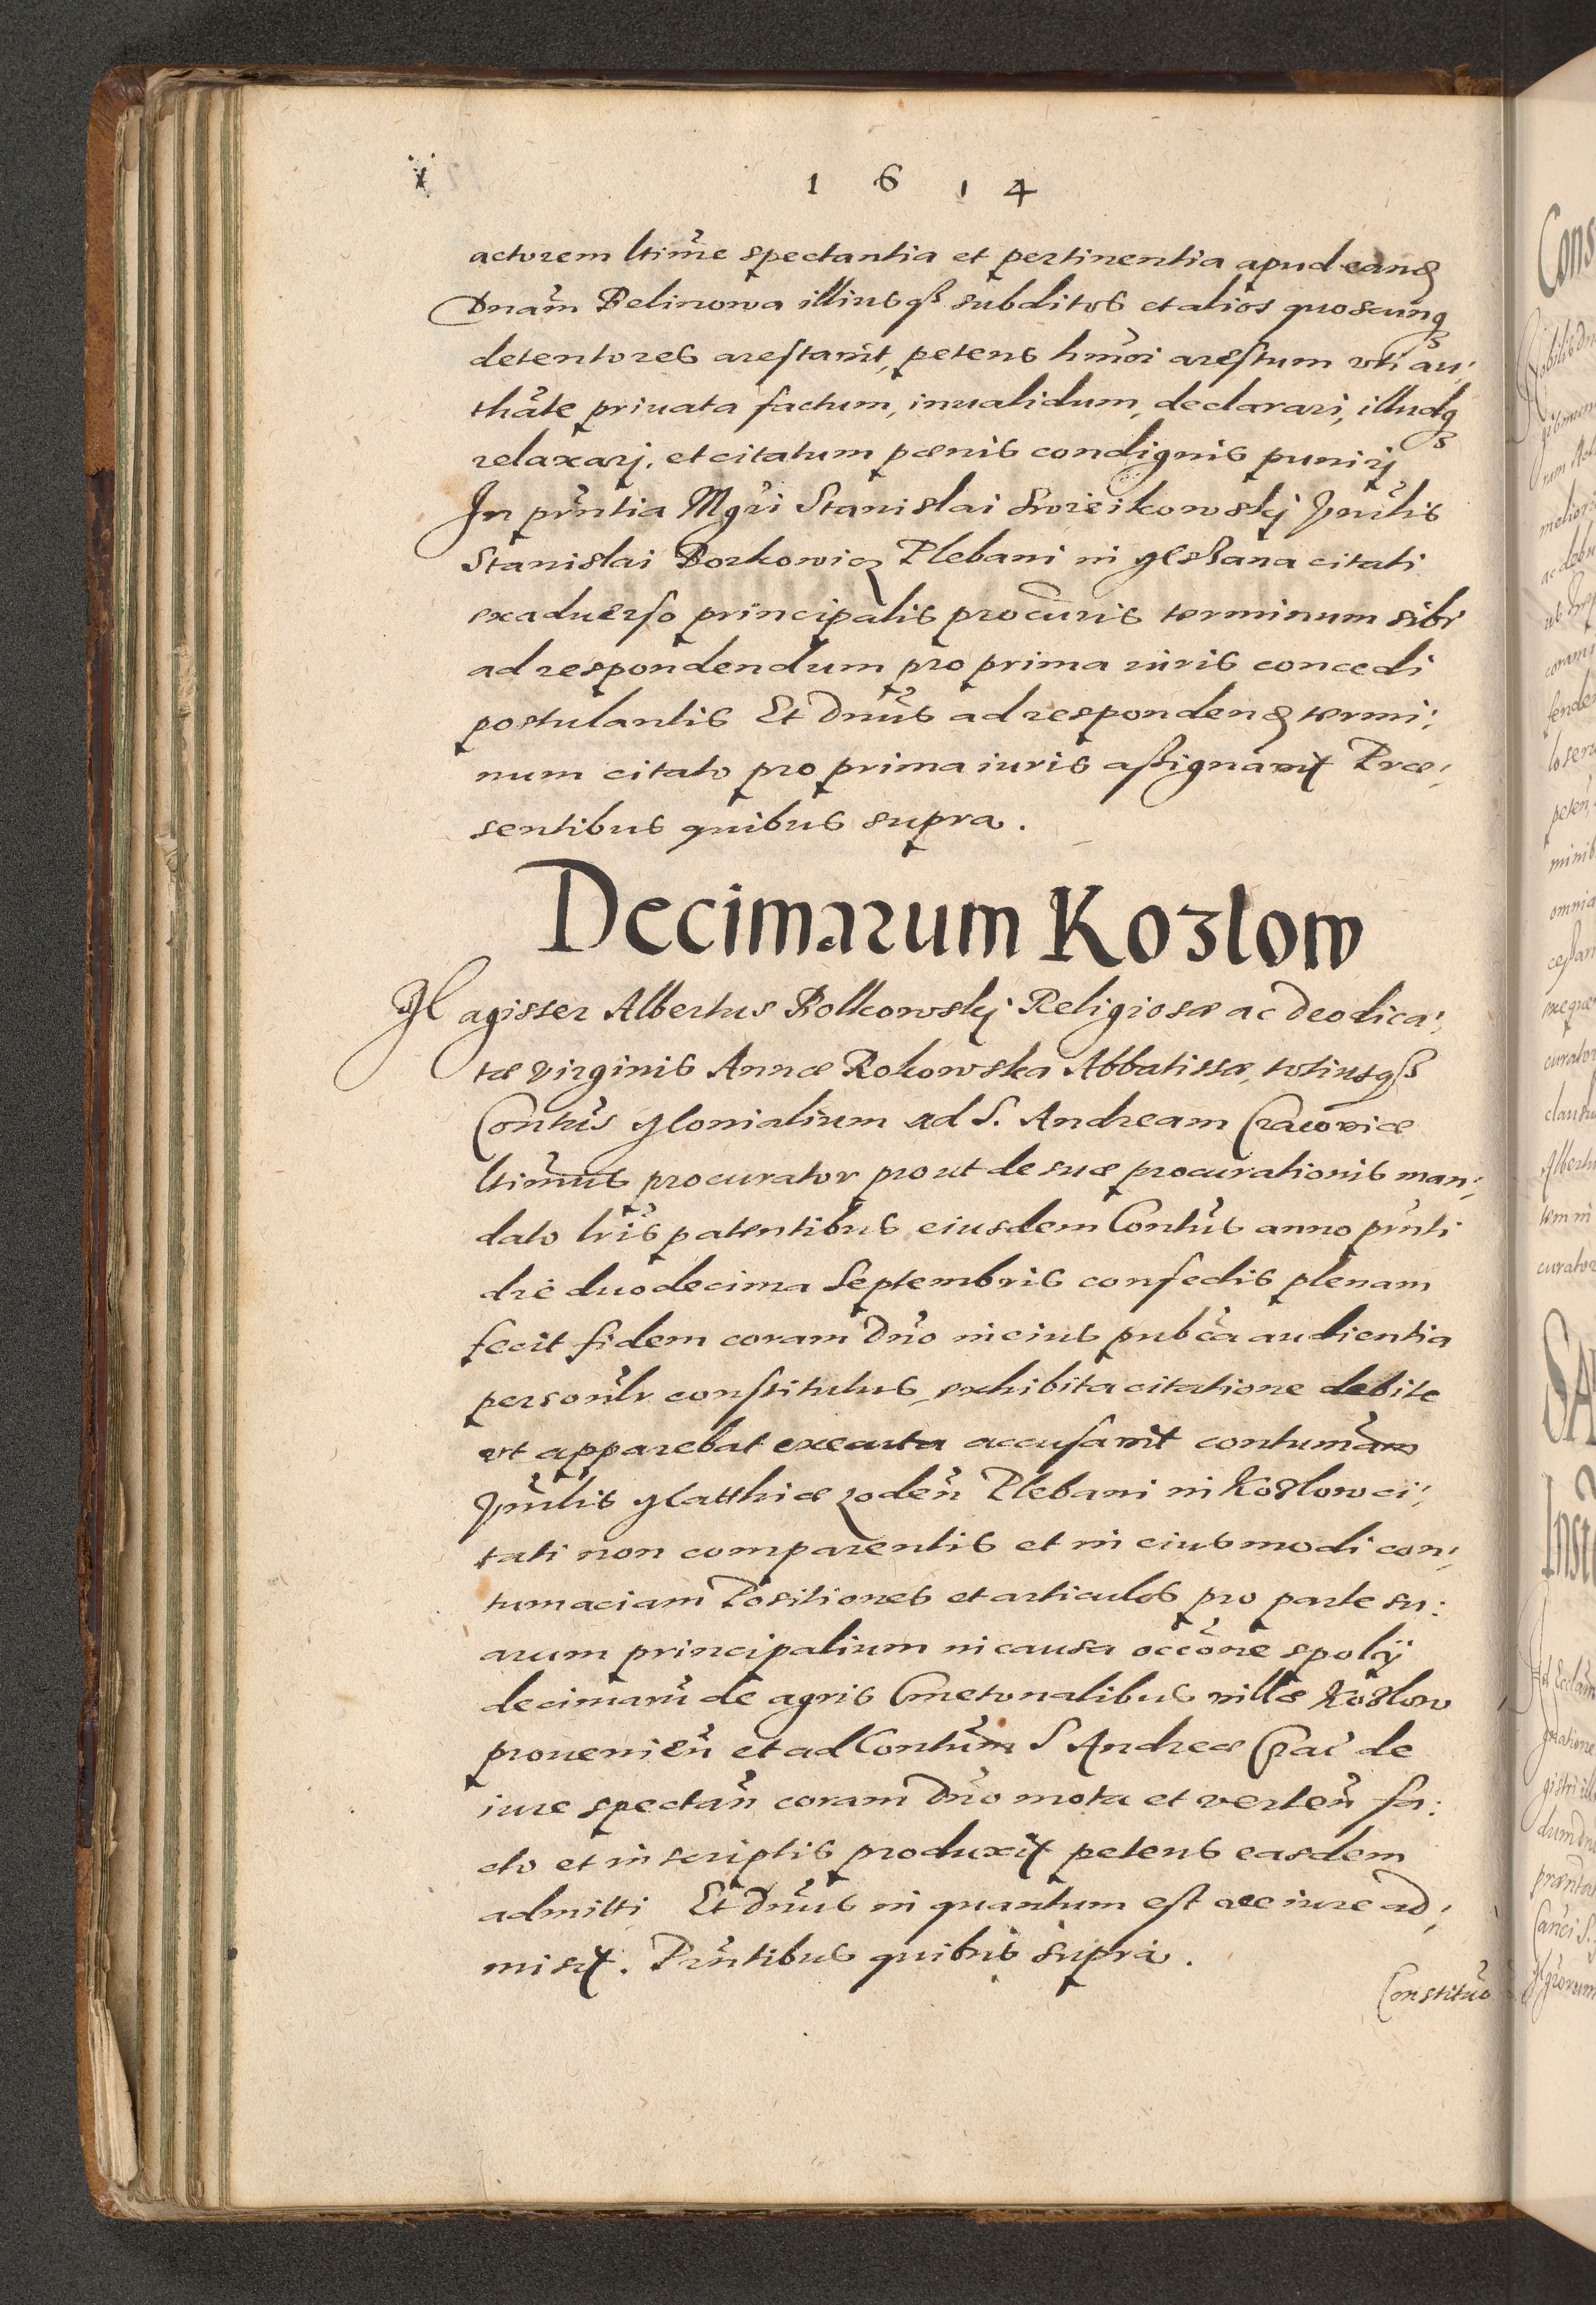 1614
actorem ltime spectantia et pertinentia apud eand
Dnam Belinowa illiusqꝫ subditos et alios quoscunqꝫ
detentores arestavit, petens hmoi arestum uti au:
thate privata factum, invalidum, declarari, illudqꝫ
relaxarj, et citatum pœnis condignis punirj
In pntia Mgri Stanislai Swieikowskj Vnlis
Stanislai Borkowicz Plebani in Mstzana citati
ex adverso principalis procuris terminum sibi
ad respondendum pro prima iuris concedi
postulantis Et Dnus ad respondend termi:
num citato pro prima iuris assignavit Præ:
sentibus quibus supra.
Decimarum Kozlow
Magister Albertus Bolkowskj Religiosæ ac Deo dica:
tæ virginis Annæ Rokowska Abbatissæ, totiusqꝫ
Contus Monialium ad S. Andream Cracoviæ
ltimus procurator prout de suæ procurationis man:
dato lris patentibus eiusdem Contus anno pnti
die duodecima Septembris confectis plenam
fecit fidem coram Dno in eius pubca audientia
personlr constitutus, exhibita citatione debite
ut apparebat executa accusavit contumam
Vnlis Matthiæ Zoden Plebani in Kozlow ci:
tati non comparentis et in eiusmodi con:
tumaciam Positiones et articulos pro parte su:
arum principalium in causa occone spolij
decimaru de agris Cmetonalibus villæ Kozlow
provenien et ad Contum S Andreæ Crac de
iure spectan coram Dno mota et verten fa:
cto et in scriptis produxit petens easdem
admitti Et Dnus in quantum est de iure ad:
misit. Pntibus quibus supra.
Constituo